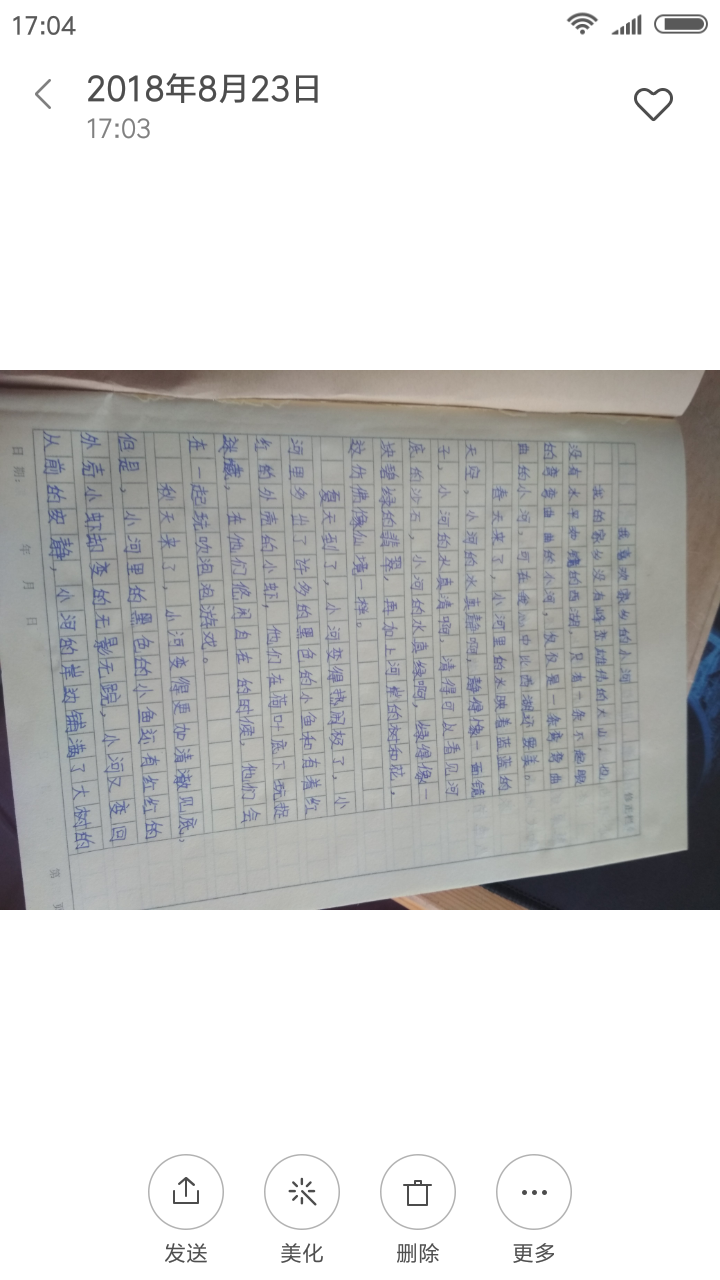 17:04
2018年8月23日
17:03
我喜欢家乡的小河
我的家乡没有峰峦雄伟的大山，也
没有水平如镜的西湖，只有一条不起眼
的弯弯曲曲的小河，仅仅是一条弯弯曲
曲的小河，可在我心中比西湖还要美。
春天来了，小河里的水映着蓝蓝的
天空，小河的水真静啊，静得像一面镜
子，小河的水真清啊，清得可以看见河
底的沙石，小河的水真绿啊，绿得像一
块碧绿的翡翠，再加上河岸的树和花，
致仿佛像仙境一样。
夏天到了，小河变得热闹极了，小
河里多出了许多的黑色的小鱼和有着红
红的外壳的小虾，他们在荷叶底下玩捉
迷藏，在他们悠闲自在的时候，他们会
在一起玩吹泡泡游戏。
秋天来了，小河变得更加清澈见底，
但是，小河里的黑色的小鱼还有红红的
外壳小虾却变的无影无踪，小河又变回
从前的安静，小河的岸边铺满了大树的
日期： 年 月 日
第
发送
美化
删除
更多